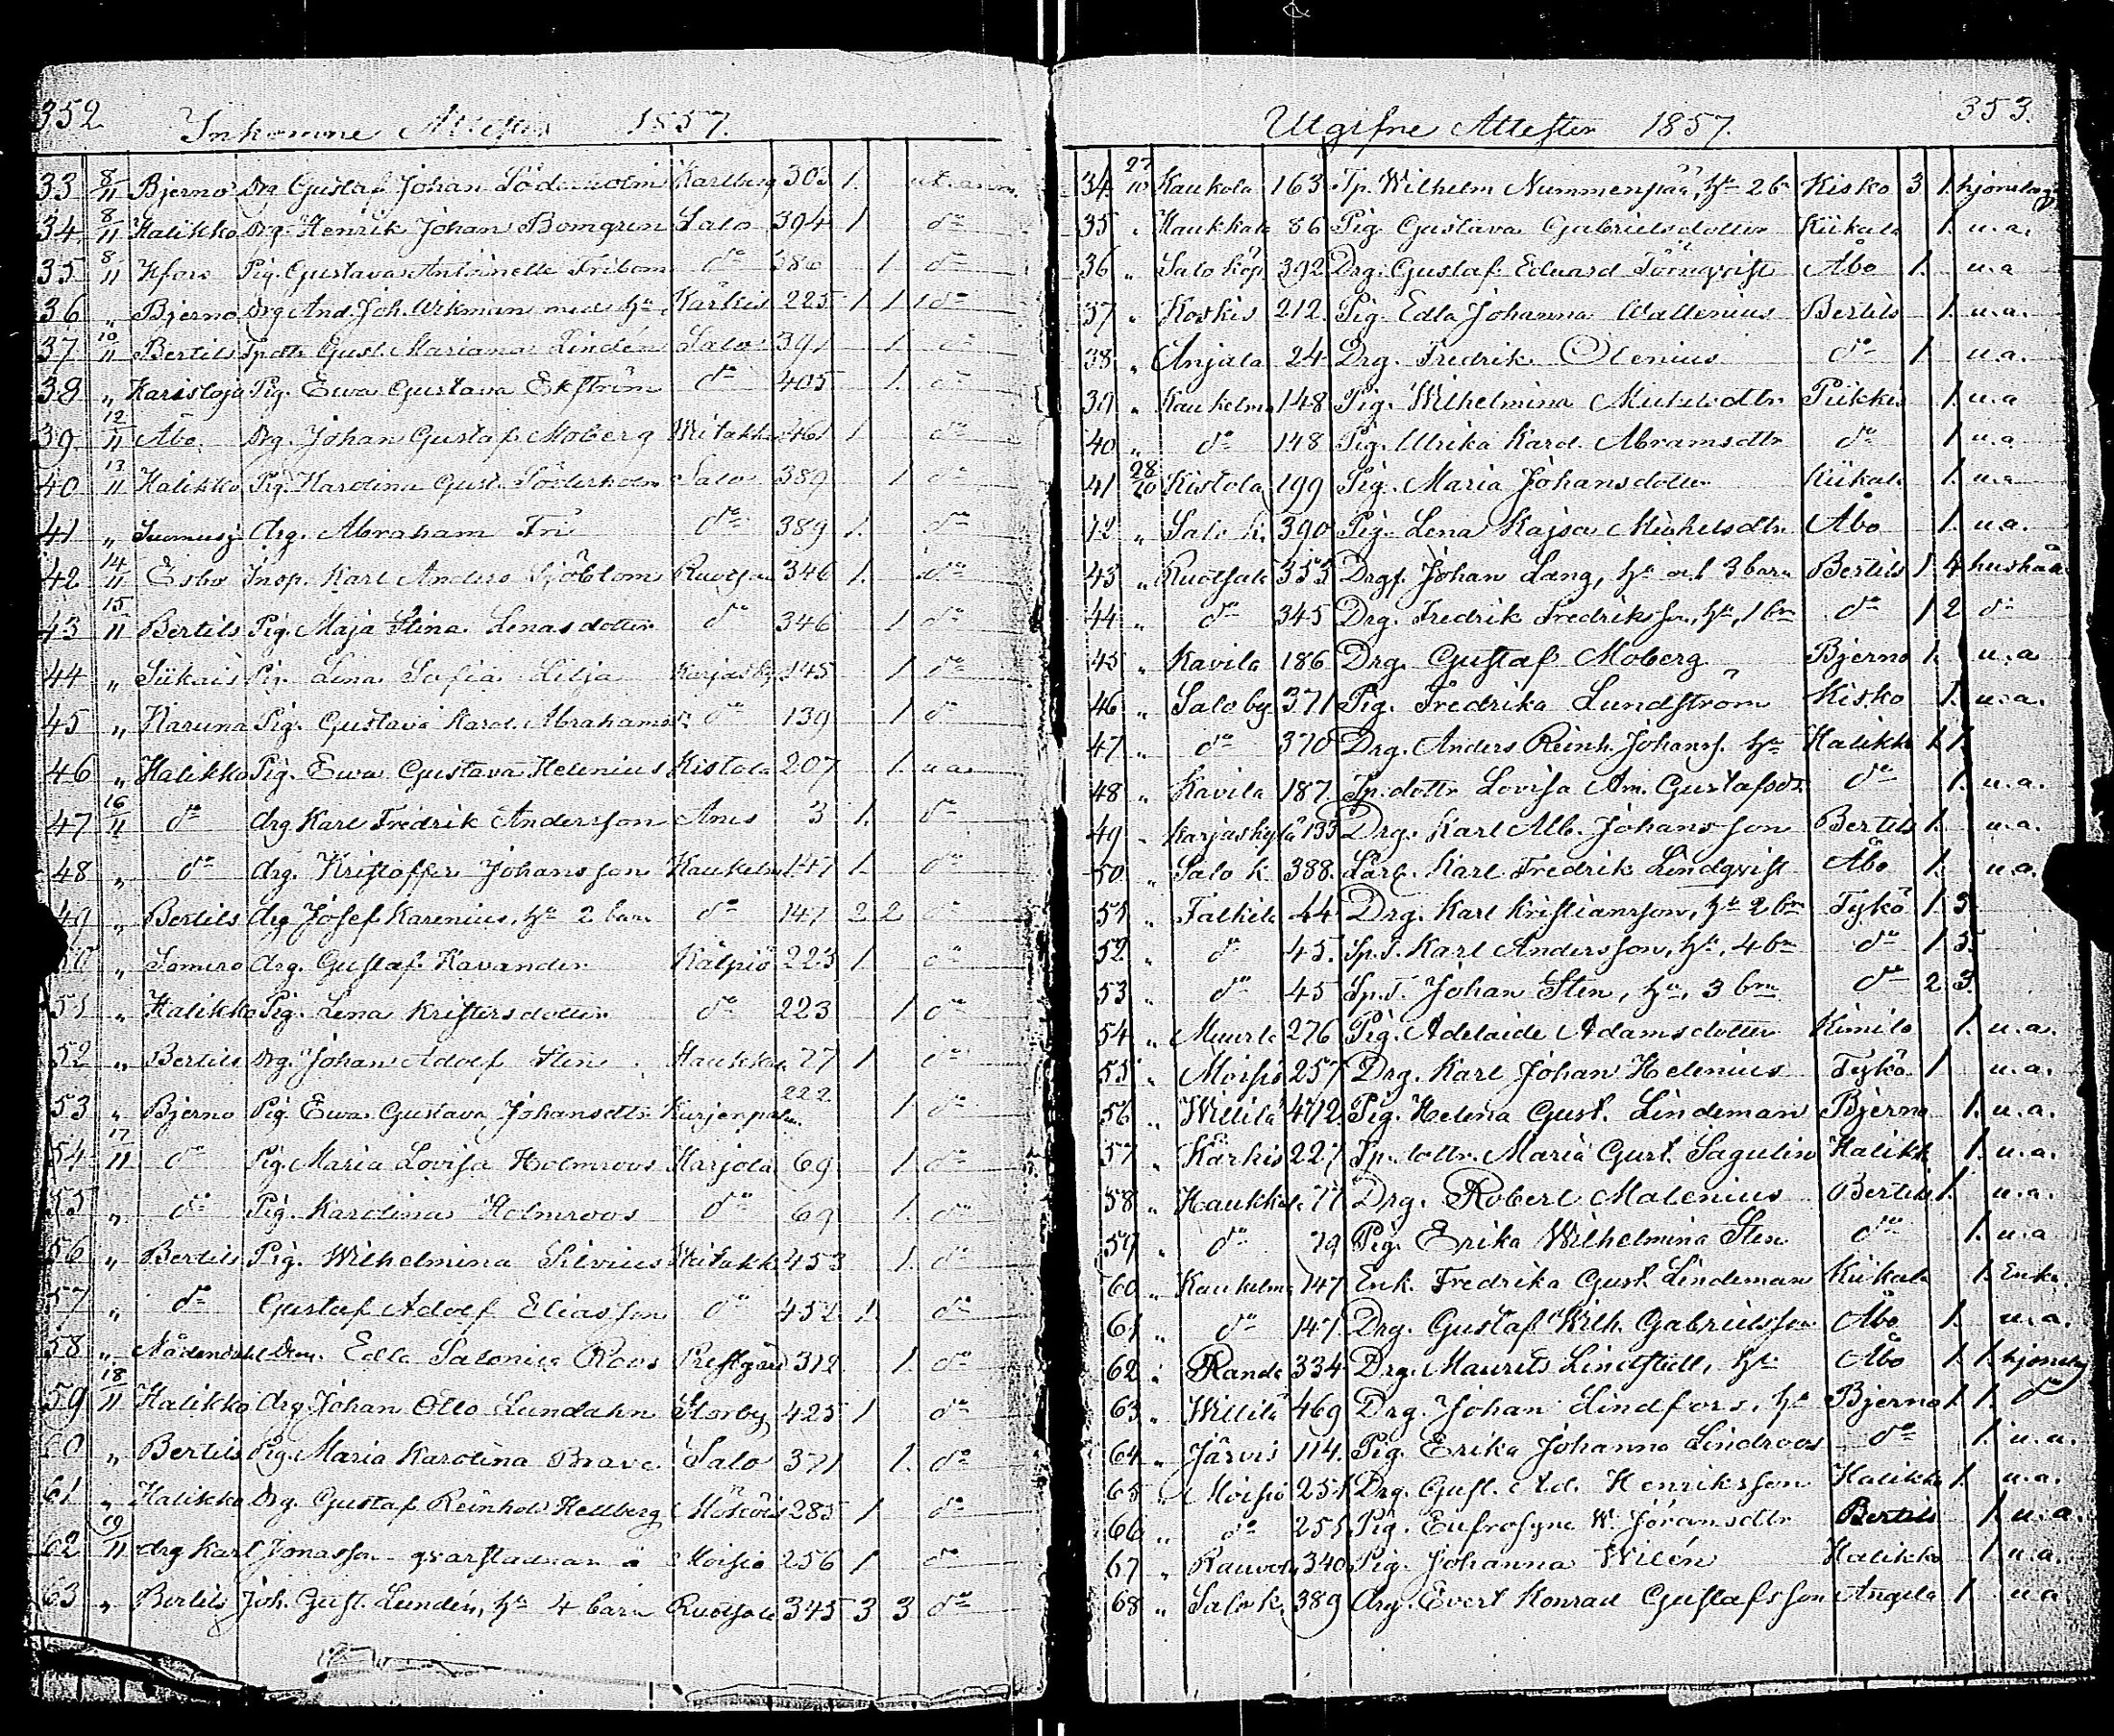 352
Inkomne Attester 1857.
33 8/11 Bjerno Drg Gustaf Johan Söderholm Karlberg 303 1. ut. anm.
34 8/11 Halikko Drg. Henrik Johan Bomgren Salo 394 1 do
35 8/11 Hfors Pig. Gustava Antoinette Fribom do 386 1 do
36 " Bjerno Drg And. Joh. Wikman med hu Kärkis 225 1. 1 do
37 10/11 Bertils Tpdtr Gust. Mariana Lindén Salo 391 1 do
38 " Karisloja Pig. Ewa Gustava Ekström do 405 1. do
39 12/11 Åbo Drg. Johan Gustaf Moberg 461 1 do
40 13/11 Halikko Pig. Karolina Gust. Söderholm Salo 389 1 do
41 " Suomusj drg. Abraham Fri do 389 1. do
42 14/11 Esbo Insp. Karl Anders Sjöblom Ruotsa 346 1. do
43 15/11 Bertils Pig. Maja Stina Lenasdotter do 346 1 do
44 " Siikais Pig. Lena Sofia Lilja Karjasky 145 1 do
45 " Karuna Pig. Gustava Karol. Abrahamsd: do 139 1 do
46 " Halikko Pig. Ewa Gustava Helenius Kistola 207 1. u a
47 16/11 do drg Karl Fredrik Andersson Anis 3 1. do
48 " do drg. Kristoffer Johansson Kaukelm 147 1. do
49 " Bertils drg Josef Karenius, hu 2 barn do 147 2 2 do
50 " Somero drg. Gustaf Kavander Kälpiö 223 1. do
51 " Halikko Pig. Lena Kristersdotter do 223 1 do
52 " Bertils Drg. Johan Adolf Sten Haukka 77 1 do
53 " Bjerno Pig. Ewa Gustava Johansdtr Kurjenpa 222 1. do
54 17/11 do Pig. Maria Lovisa Holmroos Karjola 69 1 do
55 " do Pig. Karolina Holmroos do 69 1. do
56 " Bertils Pig. Wilhelmina Silvius Witakk 453 1. do
57 " do Gustaf Adolf Eliasson do 452 1. do
58 " Nådendahl Dem. Edla Salonia Roos Prestgård 312 1. do
59 18/11 Halikko drg Johan Otto Lundahn Storby 425 1 do
60 " Bertils Pig. Maria Karolina Brave Salo 371 1. do
61 " Halikko Drg. Gustaf Reinhold Hellberg 285 1 do
62 19/11 drg Karl Jonasson qvarstadnan å Moisio 256 1 do
63 " Bertils Joh. Gust. Lundén, hu 4 barn Ruotsala 345 3 3 do
353.
Utgifne Attester 1857.
34. 27/10 Kaukola 163 Tp. Wilhelm Nummenpää, hu 2 bn Kisko 3 1. hjonelag
35 " Haukkala 86 Pig. Gustava Gabrielsdotter Kiikala 1. u. a.
36 " Salo köp. 392 Drg. Gustaf Eduard Törnqvist Åbo 1. u. a
37 " Koskis 212. Pig. Edla Johanna Wallenius Bertils 1. u. a.
38 " Anjala 24 Drg. Fredrik Olenius do 1. u. a.
39 " Kaukelma 148 Pig. Wilhelmina Mickelsdtr Piikkis 1. u. a
40 " do 148 Pig. Ulrika Karol. Abramsdtr do 1 u. a
41 28/10 Kistola 199 Pig. Maria Johansdotter Kiikala 1. u. a
42 " Salo k. 390 Pig. Lena Kajsa Michelsdtr Åbo 1. u. a.
43 " Ruotsala 353 Drgf. Johan Lång, hu och 3 barn Bertils 1 4 hushåll
44 " do 345 Drg. Fredrik Fredriksson, hu, 1 bn do 1 2 do
45 " Kavila 186 Drg. Gustaf Moberg Bjerno 1. u. a
46 " Salo by 371 Pig. Fredrika Lundström Kisko 1. u. a.
47 " do 370 Drg. Anders Reinh. Johanss. hu Halikko 1. 1.
48 " Kavila 187. Tp. dottr Lovisa Am. Gustafsdr. do 1. u. a.
49 " Karjaskylä 133 Drg. Karl Alb. Johansson Bertils 1. u. a.
50 " Salo k 388. Lärl. Karl Fredrik Lindqvist Åbo 1. u. a.
51 " Talkila 44 Drg. Karl Kristiansson, hu 2 bn Tykö 1. 3
52 " do 45. Sp. T. Karl Andersson, hu, 4 bn do 1 5.
53 " do 45 Sp. T. Johan Sten, hu, 3 brn do 2 3.
54 " Muurla 276 Pig. Adelaide Adamsdotter Kimito 1. u. a.
55 " Moisio 257 Drg. Karl Johan Helenius Tykö 1 u. a.
56 " Willilä 472. Pig. Helena Gust. Lindeman Bjerno 1. u. a.
57 " Kärkis 227 Tp. dottr Maria Gust. Sagulin Halikk 1. u. a.
58 " Haukkala 77 Drg. Robert Malenius Bertils 1. u. a.
59 " do 79 Pig. Erika Wilhelmina Sten do 1. u. a
60 " Kaukelma 147 Enk. Fredrika Gust. Lindeman Kiikala 1. Enka.
61 " do 147. Drg. Gustaf Wilh. Gabrielsson Åbo 1. u. a.
62 " Randa 334 Drg. Maurits Lindstedt, hu Åbo 1. 1. hjonelag
63 " Willilä 469 Drg. Johan Lindfors, hu Bjerno 1. 1. do
64 " Järvis 114. Pig. Erika Johanna Lindroos do 1. u. a.
65 " Moisio 251 Drg. Gust. Ad. Henriksson Halikko 1. u. a.
66 " do 251 Pig. Eufrosyne W. Joransdtr Bertils 1. u. a.
67 " 340 Pig. Johanna Wilén Halikko 1 u. a.
68 " Salo k. 389 drg. Evert Konrad Gustafsson Angela 1. u a